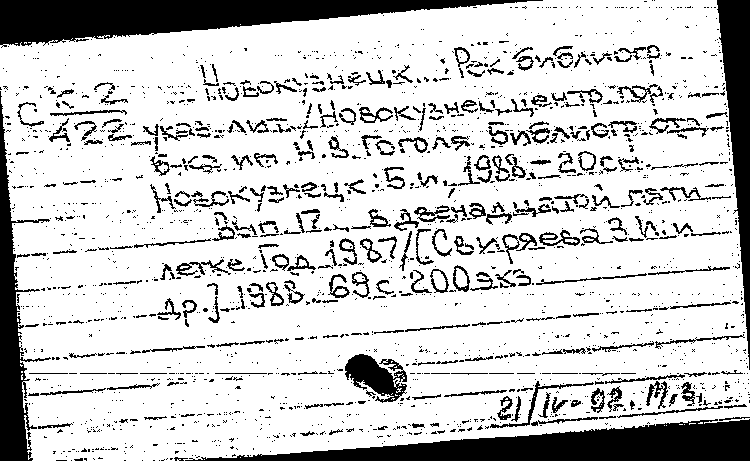 С К-2
422
Новокузнецк...: Рек. библиогр.
указ. лит. / Новокузнец. центр. гор.
б-ка им. Н. В. Гоголя. Библиогр. отд. -
Новокузнецк: Б. и., 1988. - 20 см.
Вып. 17. В двенадцатой пяти-
летке. Год 1987 / [Свиряева З. И. и
др.] 1988. 69 с. 200 экз.
21/IV-92.